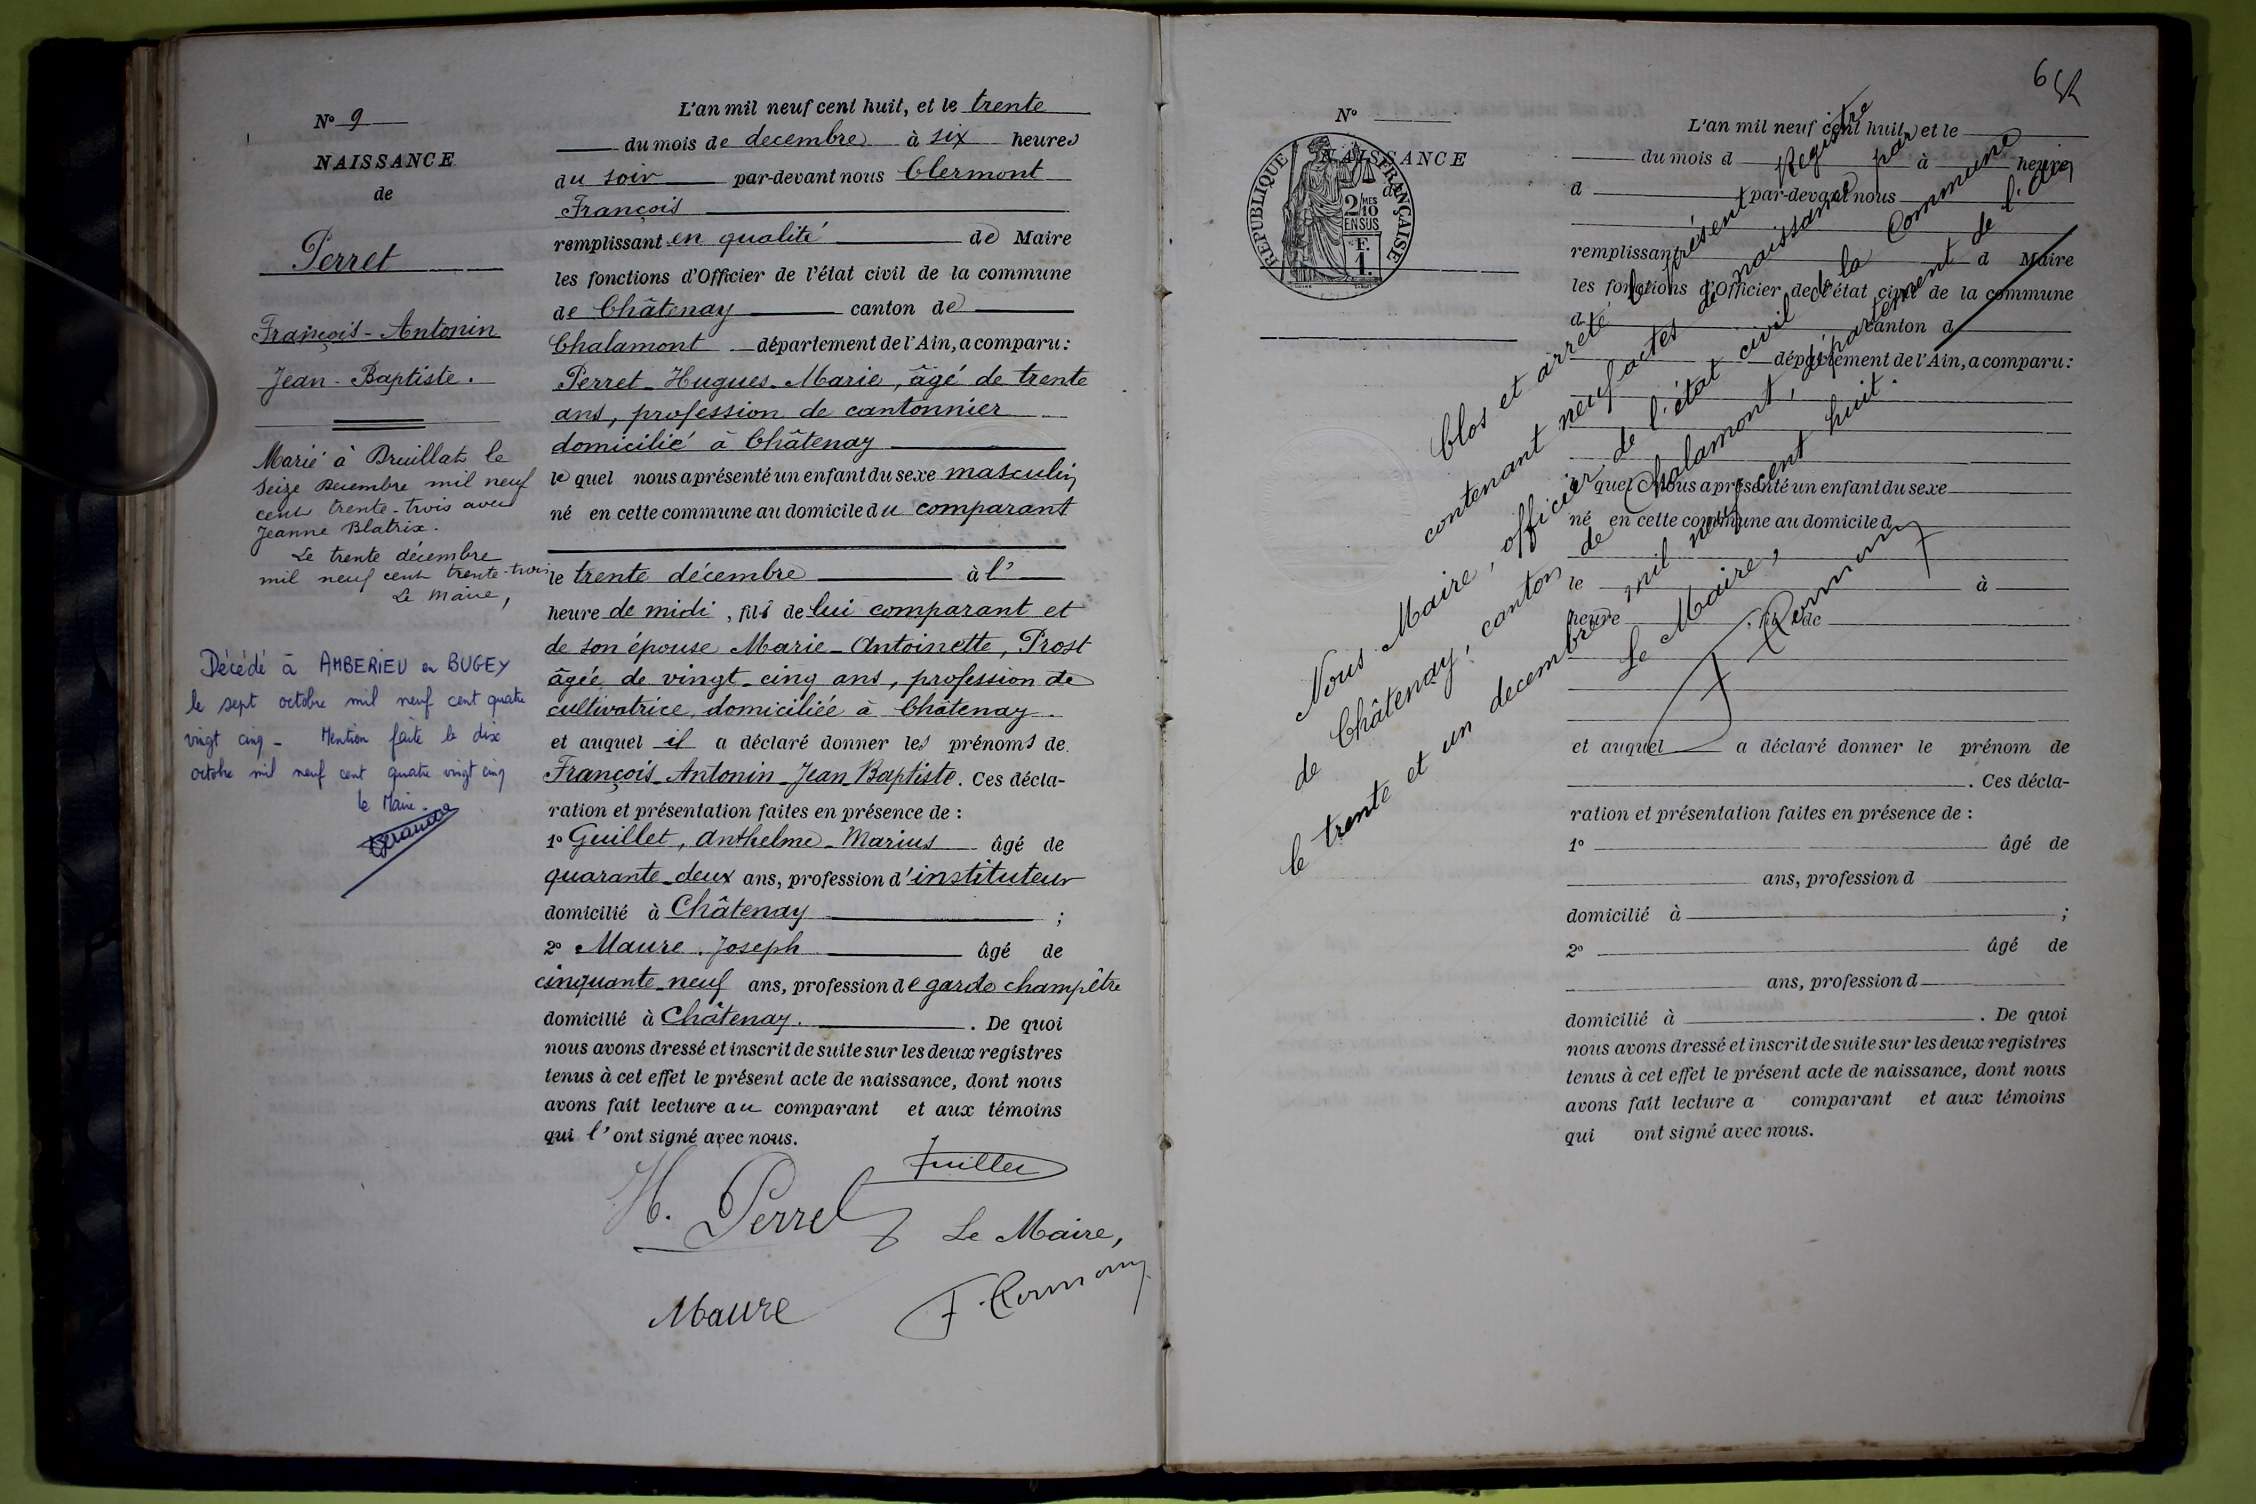 N° 9
NAISSANCE
de
Perret
François-Antonin
Jean-Baptiste.
Marié à Druillat le
seize decembre mil neuf
cent trente-trois avec
Jeanne Blatrix.
Le trente décembre
mil neuf cent trente-trois
Le Maire,
Décédé à AMBERIEU en BUGEY
le sept octobre mil neuf cent quatre
vingt cinq - Mention faite le dix
octobre mil neuf cent quatre vingt cinq
le Maire.
L'an mil neuf cent huit, et le trente
du mois de decembre à six heures
du soir par-devant nous Clermont
François
remplissant en qualité de Maire
les fonctions d'Officier de l'état civil de la commune
de Châtenay canton de
Chalamont département de l'Ain, a comparu :
Perret Hugues Marie, âgé de trente
ans, profession de cantonnier
domicilié à Châtenay
le quel nous a présenté un enfant du sexe masculin
né en cette commune au domicile du comparant
le trente décembre à l'
heure de midi, fils de lui comparant et
de son épouse Marie-Antoinette, Prost
âgée de vingt-cinq ans, profession de
cultivatrice, domiciliée à Châtenay.
et auquel il a déclaré donner les prénoms de
François-Antonin-Jean-Baptiste. Ces décla-
ration et présentation faites en présence de :
1° Guillet, Anthelme-Marius âgé de
quarante-deux ans, profession d'instituteur
domicilié à Châtenay ;
2° Maure Joseph âgé de
cinquante-neuf ans, profession de garde champêtre
domicilié à Châtenay. De quoi
nous avons dressé et inscrit de suite sur les deux registres
tenus à cet effet le présent acte de naissance, dont nous
avons fait lecture au comparant et aux témoins
qui l'ont signé avec nous.
Guillet
H. Perret
Le Maire,
Maure
F. Clermont
6
N°
NAISSANCE
de
REPUBLIQUE FRANÇAISE
2/10 MES
EN SUS
F.
1.
L'an mil neuf cent huit, et le
du mois d à heure
d par-devant nous
remplissant d Maire
les fonctions d'Officier de l'état civil de la commune
d canton d
département de l'Ain, a comparu :
quel nous a présenté un enfant du sexe
né en cette commune au domicile d
le à
heure , fil de
et auquel a déclaré donner le prénom de
. Ces décla-
ration et présentation faites en présence de :
1° âgé de
ans, profession d
domicilié à ;
2° âgé de
ans, profession d
domicilié à . De quoi
nous avons dressé et inscrit de suite sur les deux registres
tenus à cet effet le présent acte de naissance, dont nous
avons fait lecture a comparant et aux témoins
qui ont signé avec nous.
Clos et arrêté le présent Registre
contenant neuf actes de naissance par
Nous Maire, officier de l'état civil de la Commune
de Châtenay, canton de Chalamont, département de l'Ain,
le trente et un decembre mil neuf cent huit.
Le Maire,
F. Clermont